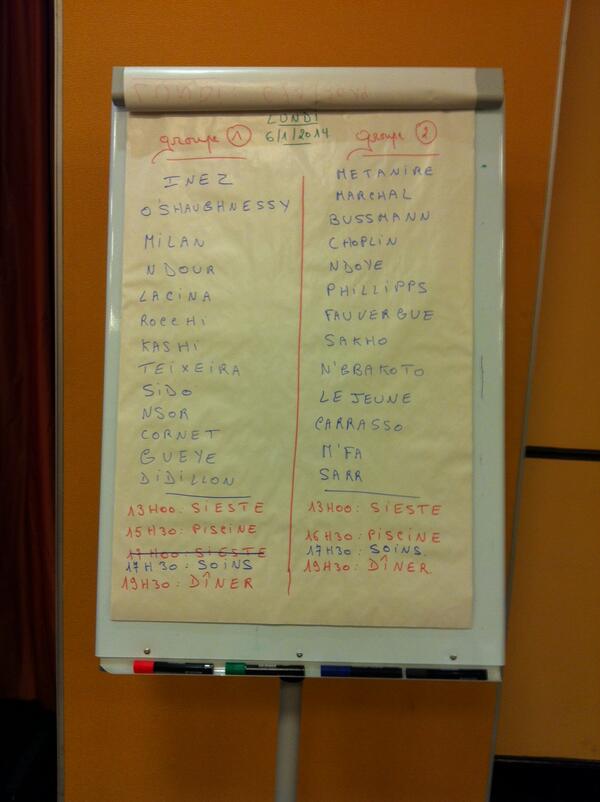 LUNDI
6/1/2014
groupe 1
INEZ
O'SHAUGHNESSY
MILAN
NDOUR
LACINA
ROCCHI
KASHI
TEIXEIRA
SIDO
NSOR
CORNET
GUEYE
DIDILLON
13H00: SIESTE
15H30: PISCINE
17H00: SIESTE
17H30: SOINS
19H30: DÎNER
groupe 2
METANIRE
MARCHAL
BUSSMANN
CHOPLIN
NDOYE
PHILLIPPS
FAUVERGUE
SAKHO
N'GBAKOTO
LEJEUNE
CARRASSO
M'FA
SARR
13H00: SIESTE
16H30: PISCINE
17H30: SOINS.
19H30: DÎNER.